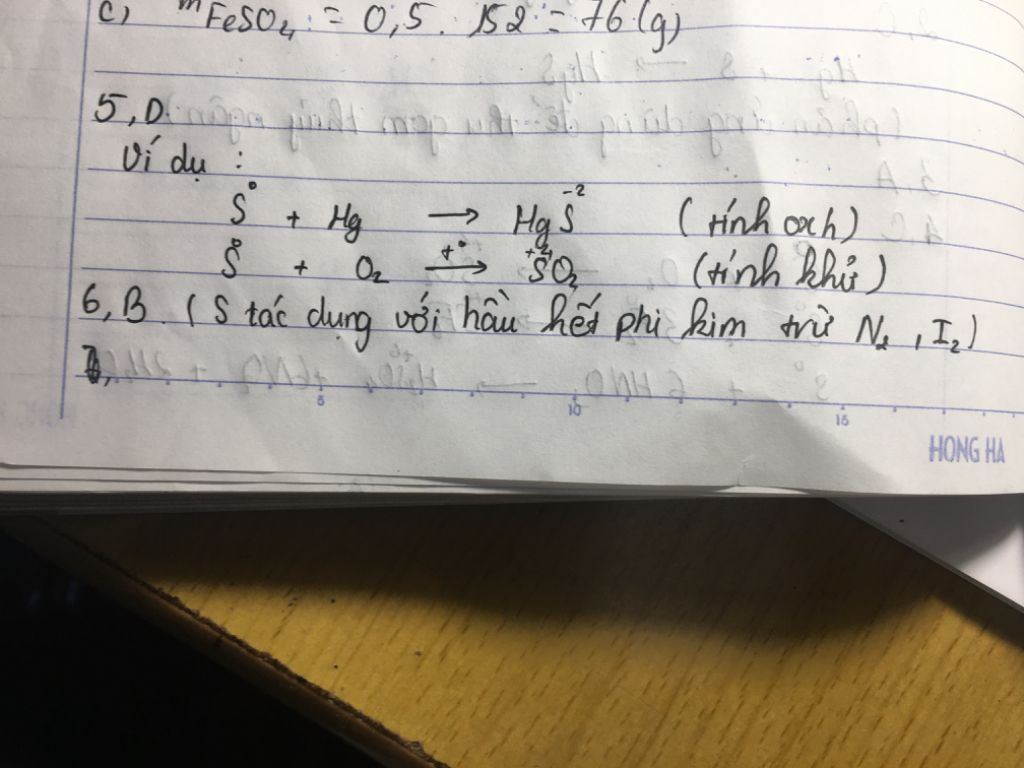 c) mFeSO₄ = 0,5 . 152 = 76 (g)
5, D
Ví dụ :
S⁰ + Hg → HgS⁻² (tính oxh)
S⁰ + O₂ —t⁰→ S⁺⁴O₂ (tính khử)
6, B (S tác dụng với hầu hết phi kim trừ N₂, I₂)
7,
5 10 15
HONG HA